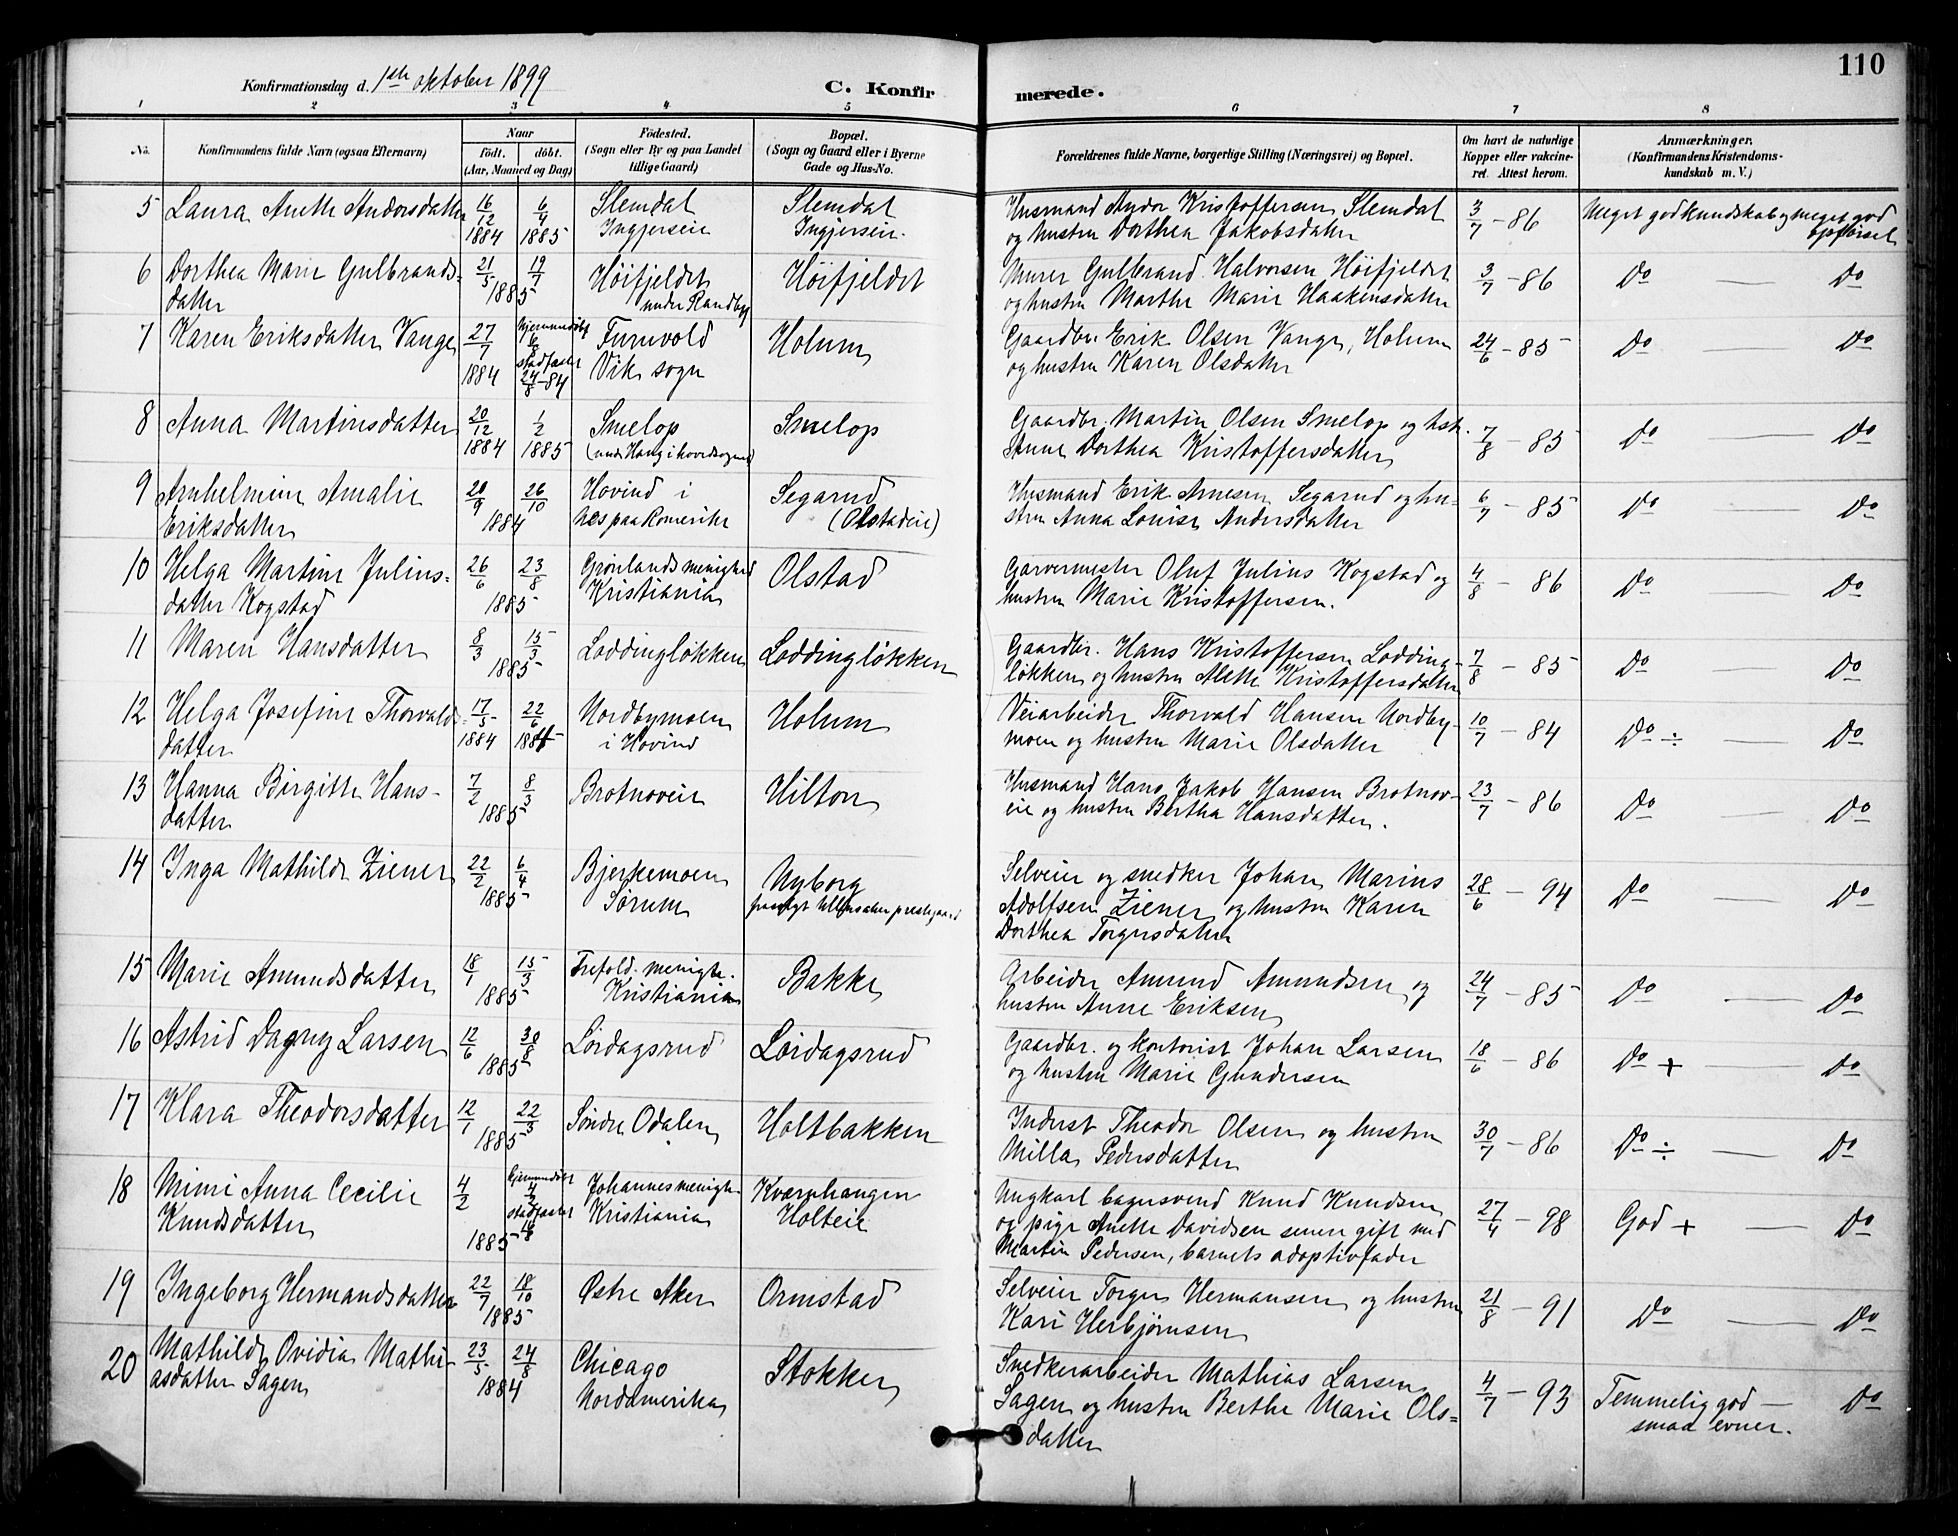 110
Konfirmationsdag d. 1ste oktober 1899
C. Konfirmerede.
1 2 3 4 5 6 7 8
No.
Konfirmandens fulde Navn (ogsaa Efternavn)
Naar
födt. döbt.
(Aar, Maaned og Dag)
Födested.
(Sogn eller By og paa Landet
tillige Gaard)
Bopæl.
(Sogn og Gaard eller i Byerne
Gade og Hus-No.
Forældrenes fulde Navne, borgerlige Stilling (Næringsvei) og Bopæl.
Om havt de naturlige
Kopper eller vakcine-
ret. Attest herom.
Anmærkninger.
(Konfirmandens Kristendoms-
kundskab m. V.)
5 Laura Anette Andorsdatter 16/12 1884 6/4 1885 Slemdal Ingjerseie Slemdal Ingjerseie. Husmand Andor Kristoffersen Slemdal
og hustru Dorthea Jakobsdatter 3/7 - 86 Meget god kundskab og meget god
opførsel
6 Dorthea Marie Gulbrands-
datter 21/5 19/7 1885 Höifjeldet
under Randby Höifjeldet Murer Gulbrand Halvorsen Höifjeldet
og hustru Marthe Marie Haakensdatter 3/7 - 86 Do — Do
7 Karen Eriksdatter Vange 27/7 1884 hjemmedøbt 6/8 stadfæstet 24/8 - 84 Furuvold
Vik sogn Holum Gaardbr. Erik Olsen Vange, Holum
og hustru Karen Olsdatter 24/6 - 85 Do — Do
8 Anna Martinsdatter 20/12 1884 1/2 1885 Smelop
(under Haug i hovedsognet) Smelop Gaardbr. Martin Olsen Smelop og hst.
Anne Dorthea Kristoffersdatter 7/8 - 85 Do — Do
9 Arnhelmine Amalie
Eriksdatter 20/9 26/10 1884 Hovind i
Næs paa Romerike Segarud
(Olstadeie) Husmand Erik Arnesen Segarud og hu-
stru Anna Louise Andersdatter 6/7 - 85 Do — Do
10 Helga Martine Julius-
datter Kogstad 26/6 23/8 1885 Grønlands menighed
Kristiania Olstad Garvermester Oluf Julius Kogstad og
hustru Marie Kristoffersen. 4/8 - 86 Do — Do
11 Maren Hansdatter 8/3 15/3 1885 Loddingløkken Loddingløkken Gaardbr. Hans Kristoffersen Lodding-
løkken og hustru Alette Kristoffersdatter 7/8 - 85 Do — Do
12 Helga Josefine Thorvalds-
datter 17/5 1884 22/6 1884 Nordbymoen
i Hovind Holum Veiarbeider Thorvald Hansen Nordby-
moen og hustru Marie Olsdatter 10/7 - 84 Do ÷ — Do
13 Hanna Birgitte Hans-
datter 7/2 8/3 1885 Brotnoveie Hilton Husmand Hans Jakob Hansen Brotnov-
eie og hustru Bertha Hansdatter. 23/7 - 86 Do — Do
14 Inga Mathilde Ziener 22/2 6/4 1885 Bjerkemoen
Sørum Nyborg
Selveier og snedker Johan Marius
Adolfsen Ziener og hustru Karen
Dorthea Torgersdatter 28/6 - 94 Do — Do
15 Marie Amundsdatter 18/1 15/3 1885 Trefold. menigh.
Kristiania Bakke Arbeider Amund Amundsen og
hustru Anne Eriksen 24/7 - 85 Do — Do
16 Astrid Dagny Larsen 12/6 30/8 1885 Lørdagsrud Lørdagsrud Gaardbr. og kontorist Johan Larsen
og hustru Marie Gundersen 18/6 - 86 Do + — Do
17 Klara Theodorsdatter 12/1 22/3 1885 Søndre Odalen Holtbakken Inderst Theodor Olsen og hustru
Milla Pedersdatter 30/7 - 86 Do ÷ — Do
18 Mimi Anna Cecilie
Knudsdatter 4/2 1885 hjemmedøbt 4/2 stadfæstet 16/8 Johannes menigh.
Kristiania Kværnhaugen
Holteie Ungkarl bagersvend Knud Knudsen
og pige Anette Davidsen senere gift med
Martin Pedersen, barnets adoptivfader 27/4 - 98 God + — Do
19 Ingeborg Hermandsdatter 22/7 18/10 1885 Østre Aker Ormstad Selveier Torger Hermansen og hustru
Kari Herbjørnsen 21/8 - 91 Do — Do
20 Mathilde Ovidia Mathi-
asdatter Sagen 23/5 24/8 1884 Chicago
Nordamerika Stokker Snedkerarbeider Mathias Larsen
Sagen og hustru Berthe Marie Ols-
datter 4/7 - 93 Temmelig god —
smaa evner. Do